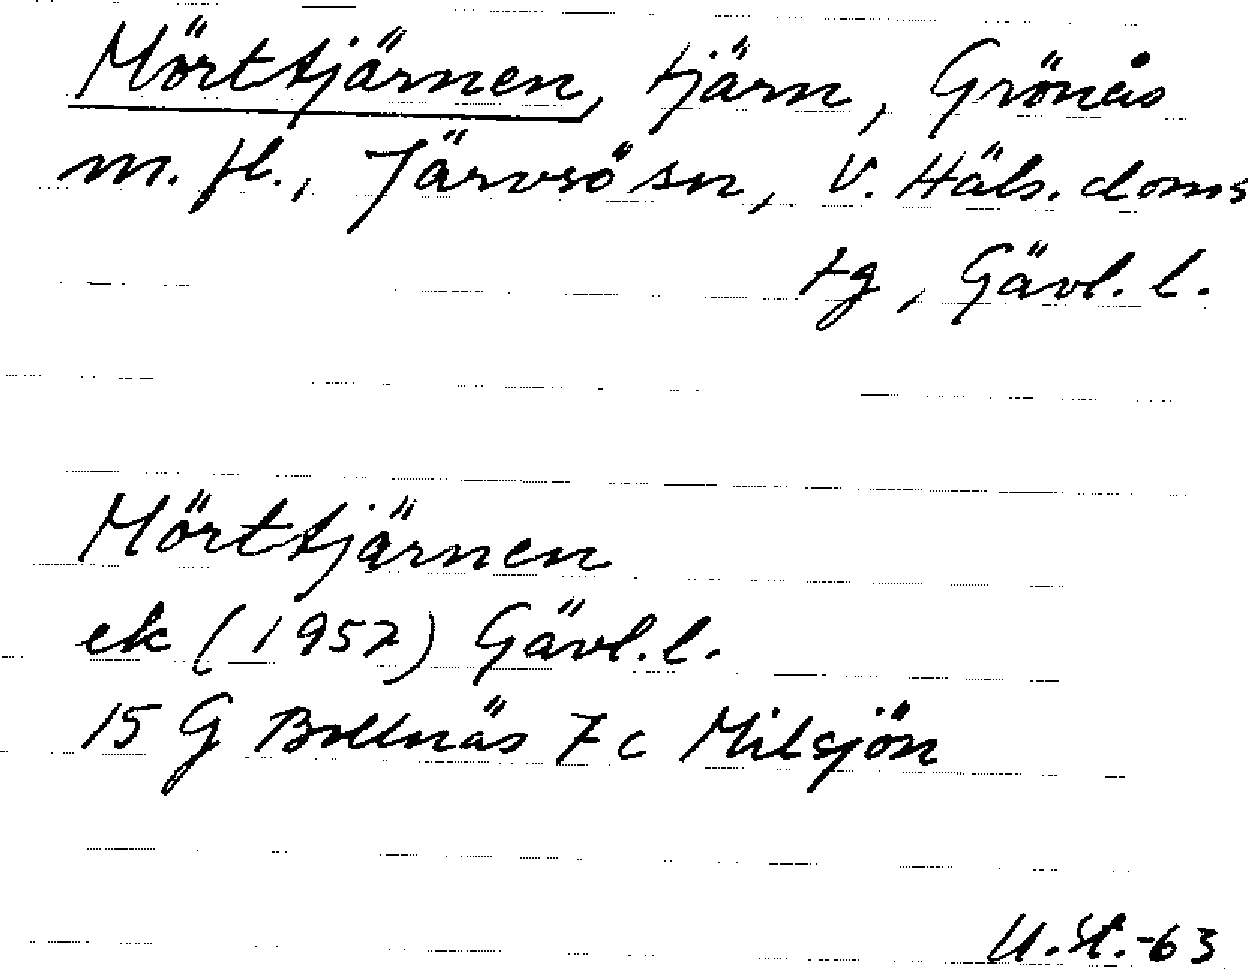 Mörttjärnen, tjärn, Grönås
m. fl., Järvsö sn, V. Häls. doms
tg, Gävl. l.
Mörttjärnen
ek (1957) Gävl. l.
15 G Bollnäs 7 c Milsjön
U. St. -63